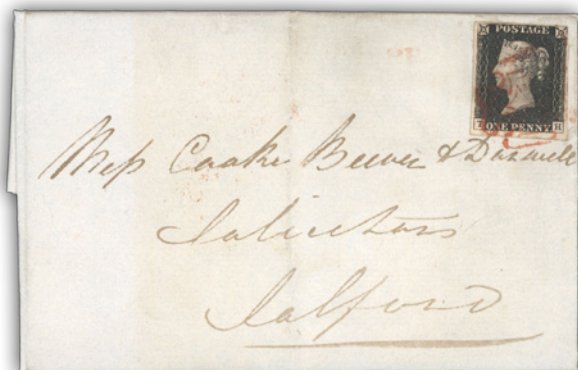 POSTAGE
T ONE PENNY H
Mess Cooke Beever & Darwell
Solicitors
Salford